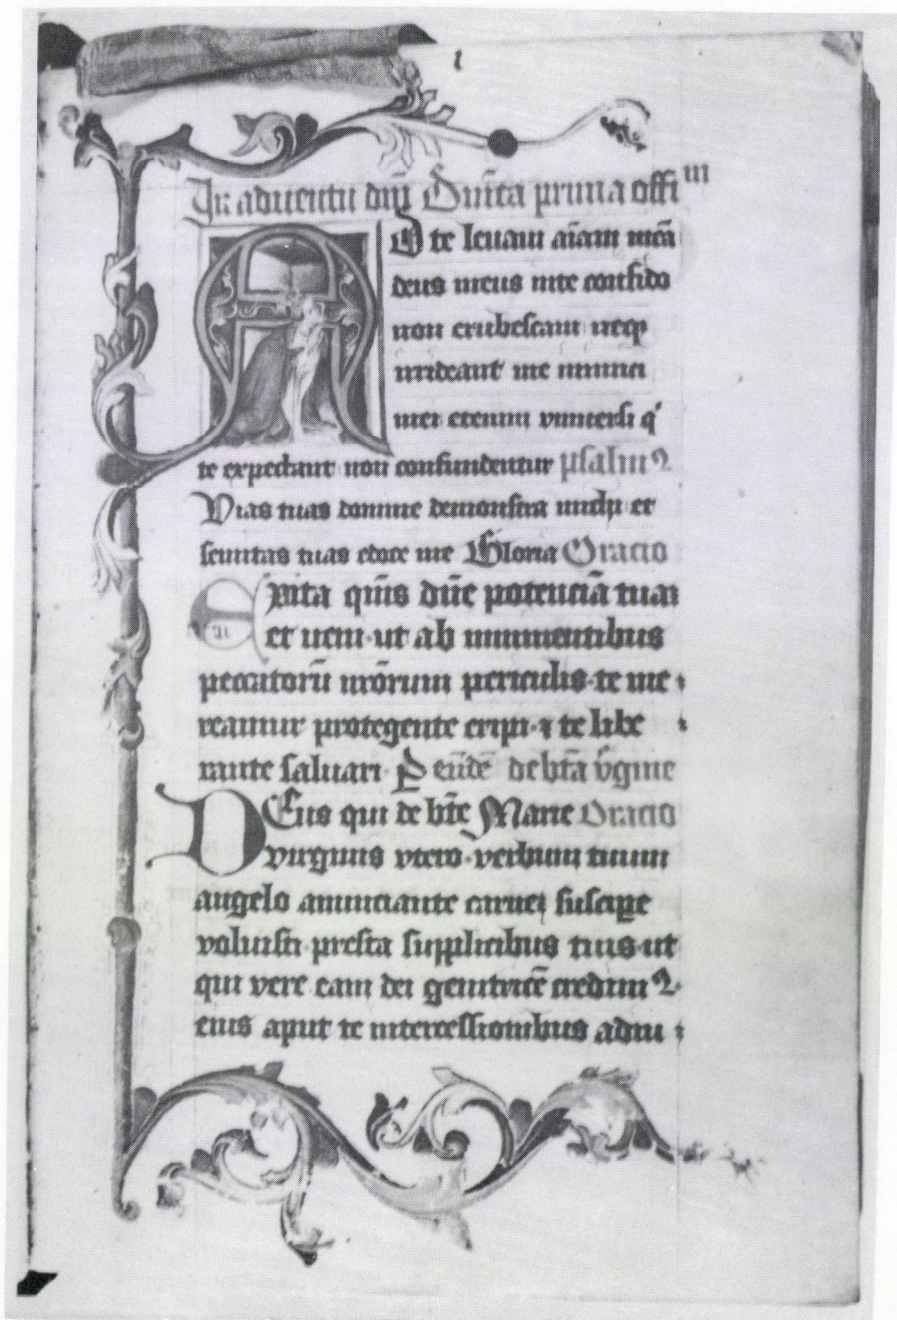 1
In aduentu dnj Dnica prima offi^m
AD te leuaui aiam meā
deus meus in te confido
non erubescam neqꝫ
irrideant me inimici
mei etenim vniuersi q'
te expectant non confundentur psalmꝰ
Vias tuas domine demonstra michi et
semitas tuas edoce me Gloria Oracio
Excita qm̄s dn̄e potenciā tuaꝫ
et ueni·ut ab imminentibus
peccatorū nr̄orum periculis·te me
reamur protegente eripi·⁊ te libe
rante saluari· de bt̄a v̄gine
DEus qui de btē Marie Oracio
virginis vtero·verbum tuum
angelo anunciante carneꝫ suscipe
voluisti·presta supplicibus tuis·ut
qui vere eam dei genitricē credimꝰ·
eius aput te intercessionibus adiu